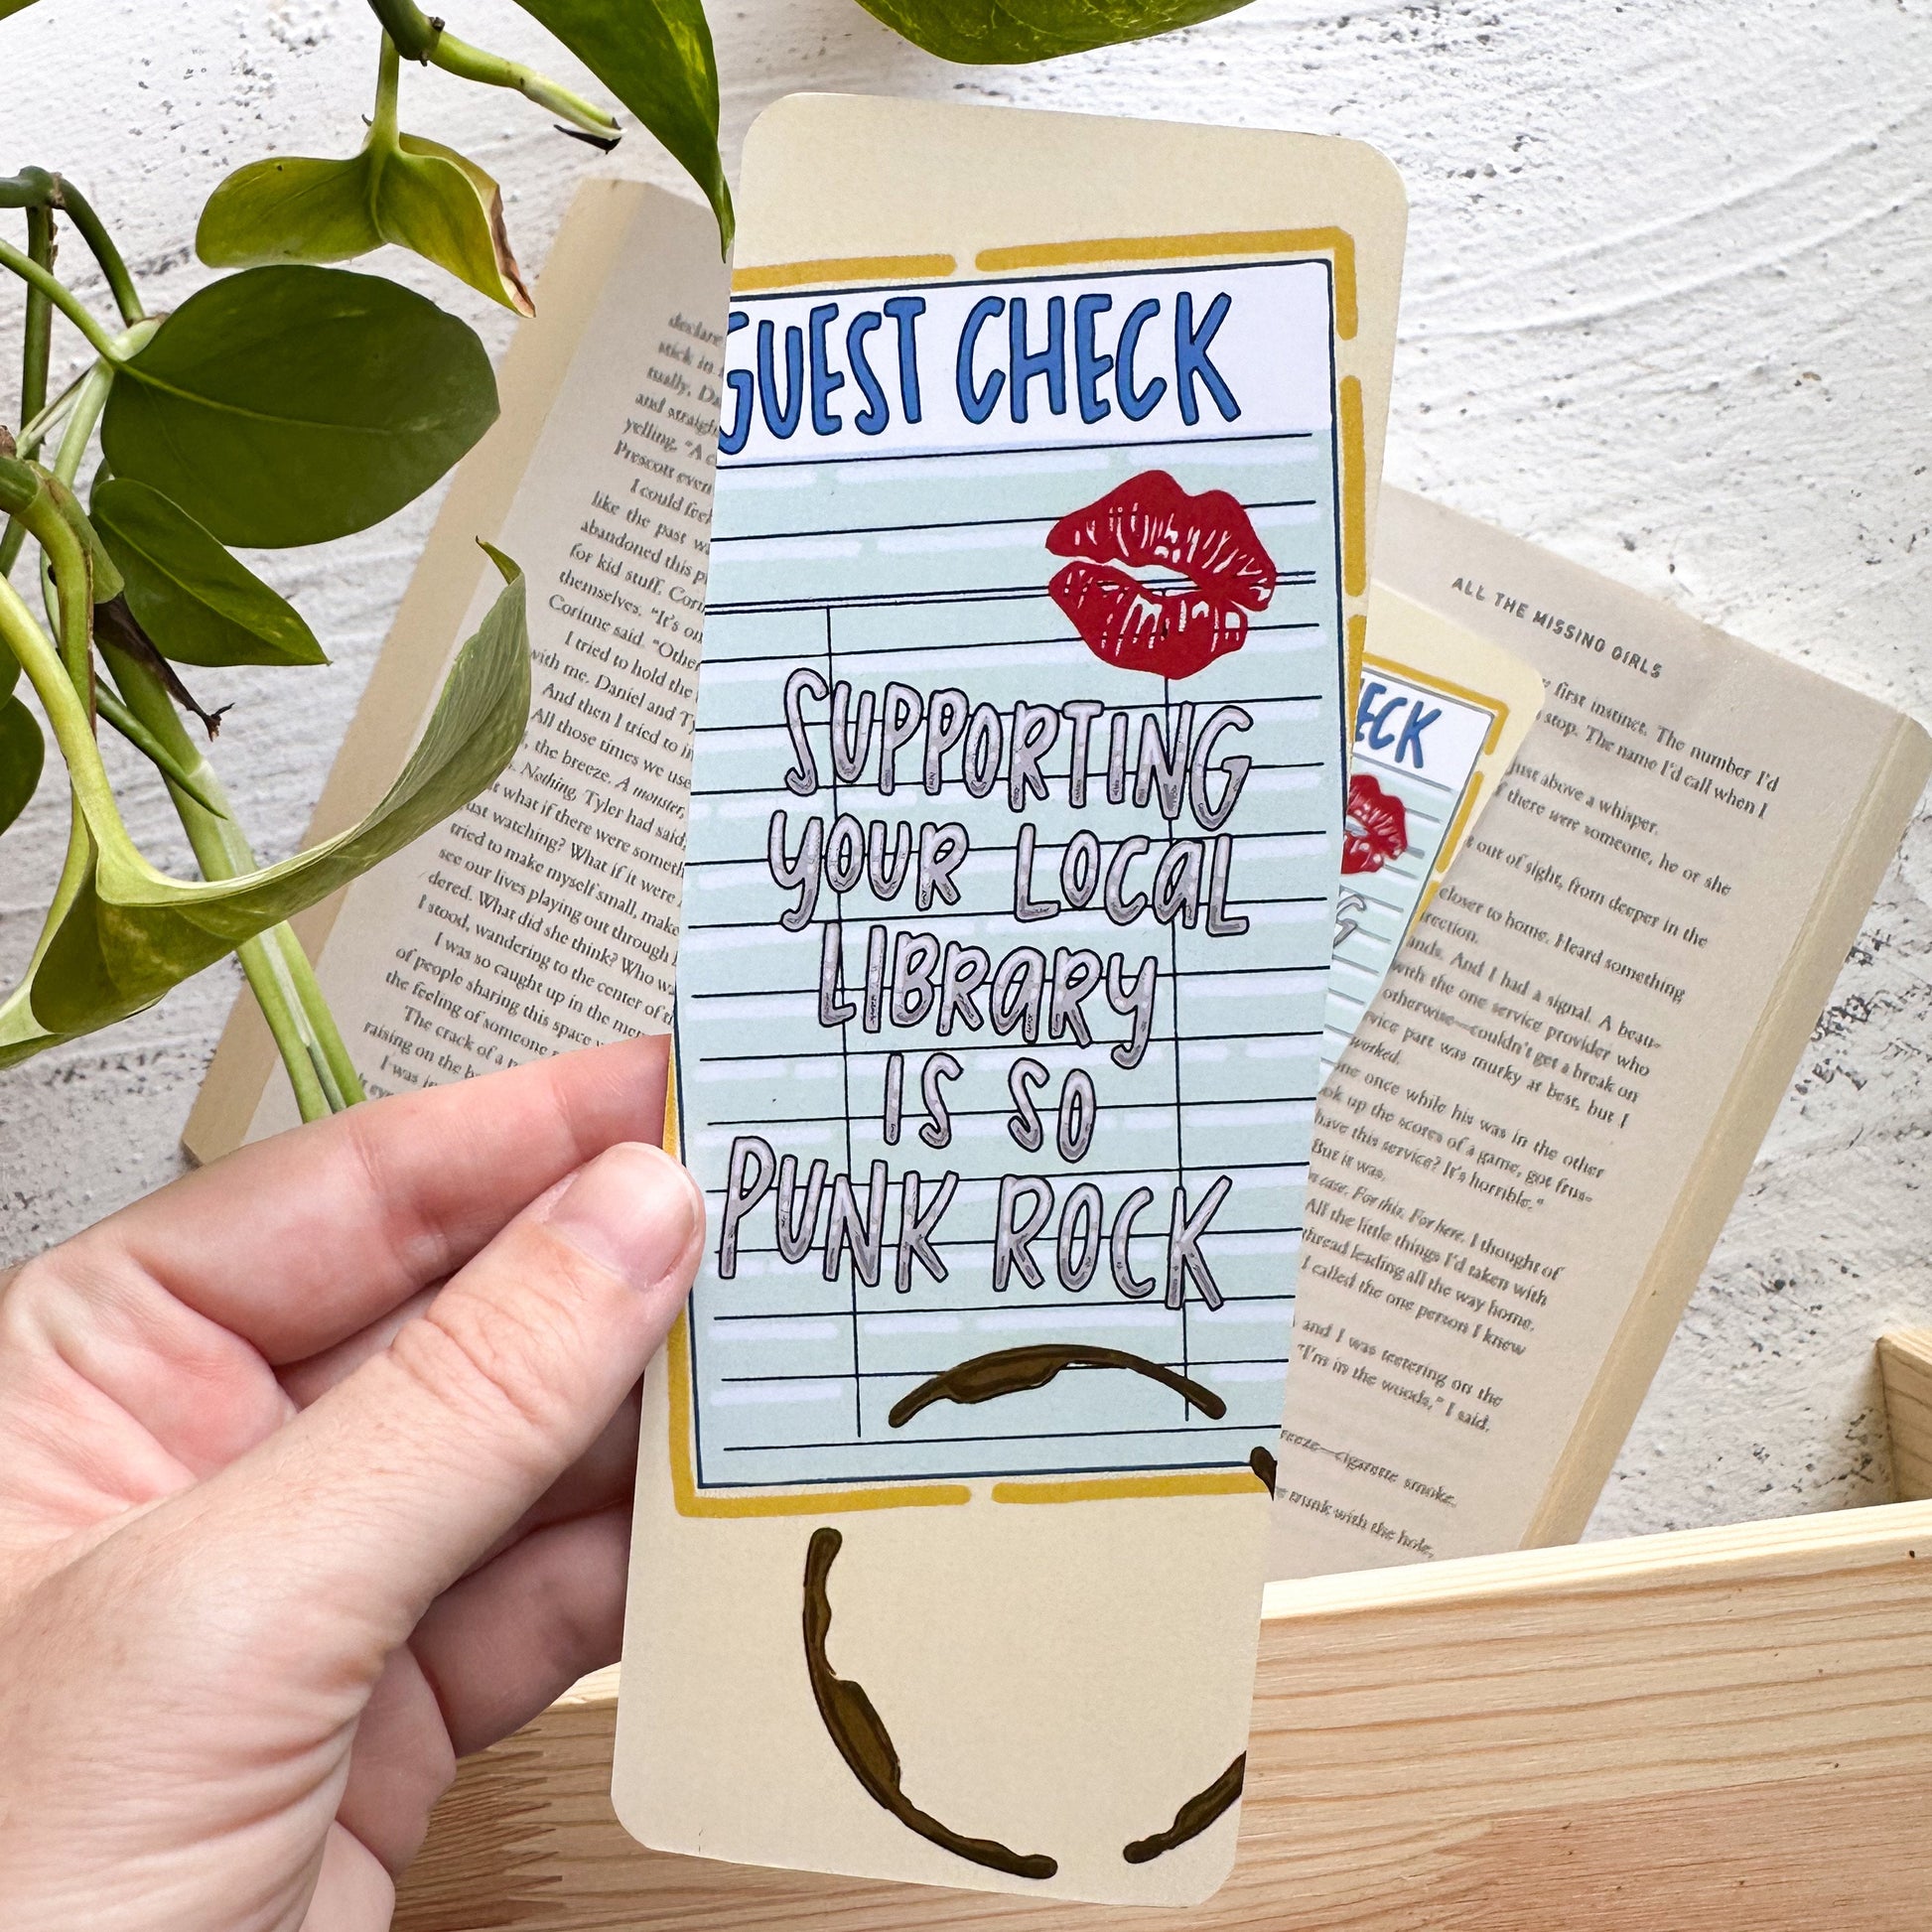 GUEST CHECK
SUPPORTING
YOUR LOCAL
LIBRARY
IS SO
PUNK ROCK
declare
stick in
tually, Da
and straigh
yelling, "A
Prescott even
I could feel
like the past wa
abandoned this p
for kid stuff, Cori
themselves. "It's on
Corinne said. "Other
I tried to hold the
with me. Daniel and Ty
And then I tried to
All those times we use
, the breeze. A monster,
s. Nothing, Tyler had said;
what if there were someth
ust watching? What if it were
tried to make myself small, make
see our lives playing out through
dered. What did she think? Who wa
I stood, wandering to the center of th
I was so caught up in the
of people sharing this space
the feeling of someone
The crack of a
raising on the b
I was
ECK
ALL THE MISSING GIRLS
first instinct. The number I'd
stop. The name I'd call when I
just above a whisper.
f there were someone, he or she
t out of sight, from deeper in the
closer to home. Heard something
rection.
ands. And I had a signal. A beau-
with the one service provider who
otherwise—couldn't get a break on
rvice part was murky at best, but I
worked.
one once while his was in the other
ook up the scores of a game, got frus-
have this service? It's horrible."
But it was.
n case. For this. For here. I thought of
All the little things I'd taken with
thread leading all the way home.
I called the one person I knew
and I was teetering on the
"I'm in the woods," I said,
reeze—cigarette smoke.
trunk with the hole,